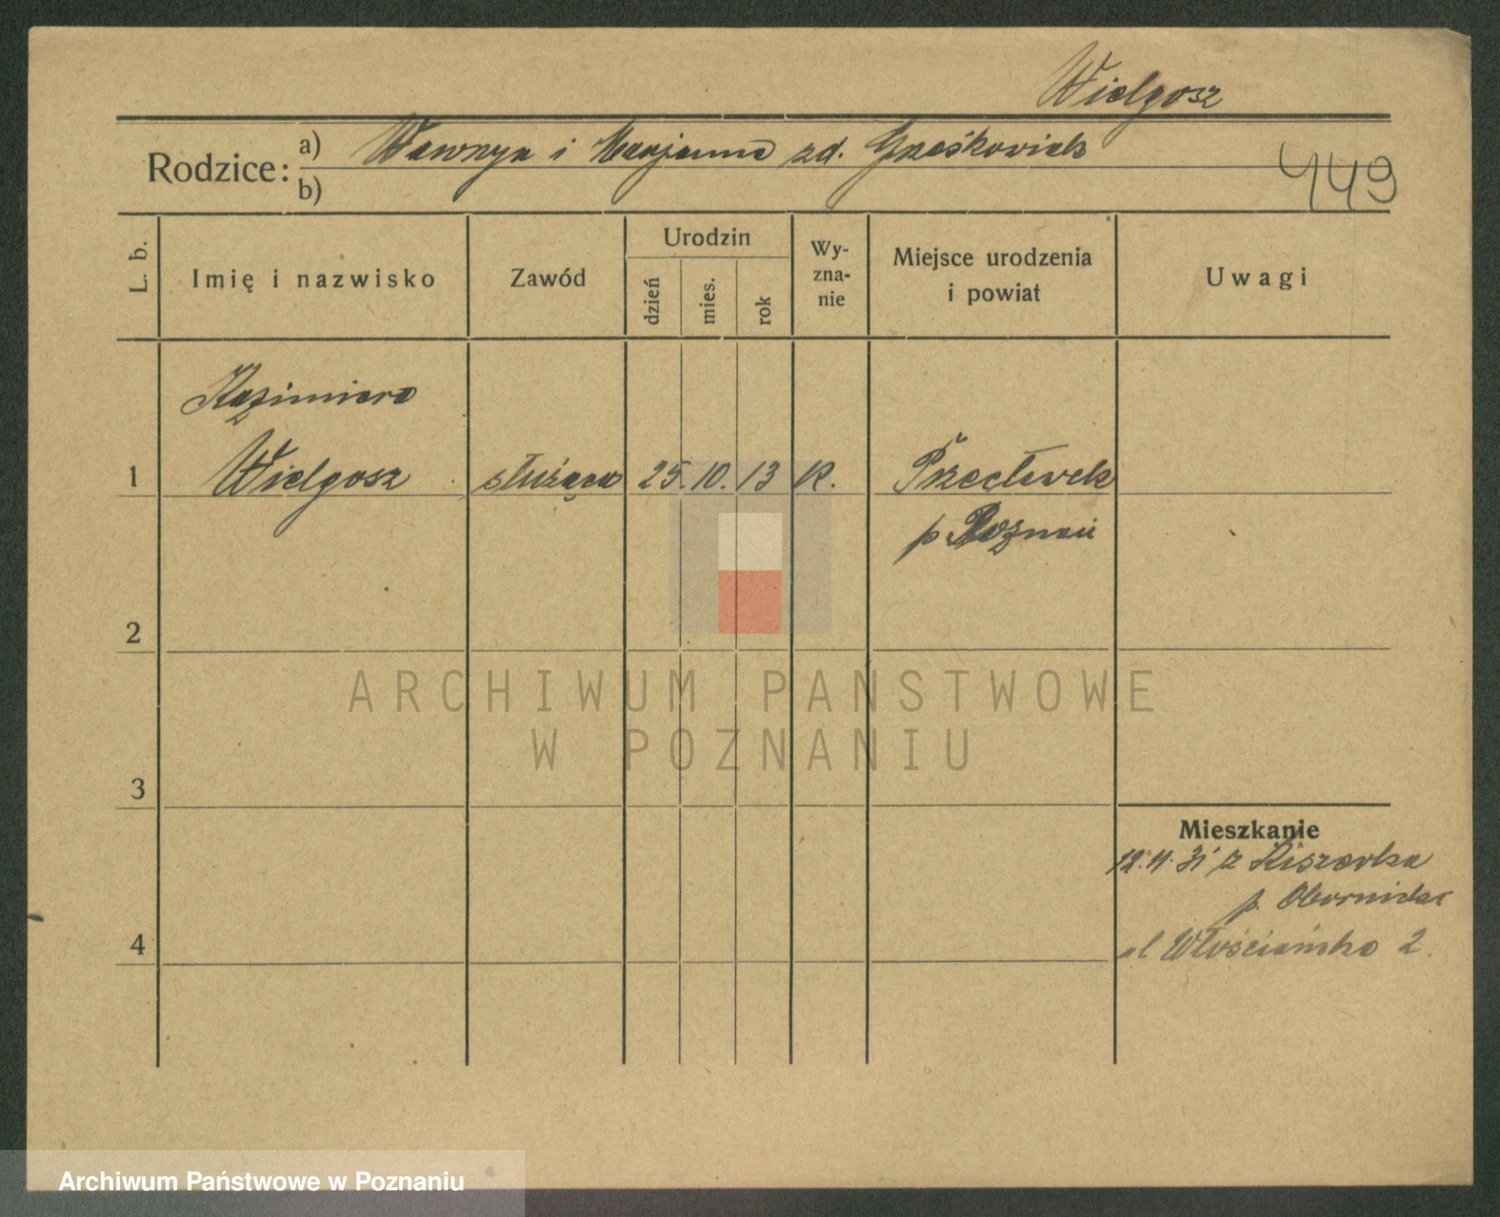 Wielgosz
Rodzice: a) Wawrzyn i Marjanna zd. Grześkowiak
b)
449
L. b.
Imię i nazwisko
Zawód
Urodzin
dzień
mies.
rok
Wy-
zna-
nie
Miejsce urodzenia
i powiat
Uwagi
Kazimiera
1 Wielgosz służąca 25. 10. 13 R. Przecławek
p Poznań
2
ARCHIWUM PAŃSTWOWE
W POZNANIU
3
Mieszkanie
12. 11. 31 z Kiszewka
p. Oborniki
4
ul Włościańska 2.
Archiwum Państwowe w Poznaniu